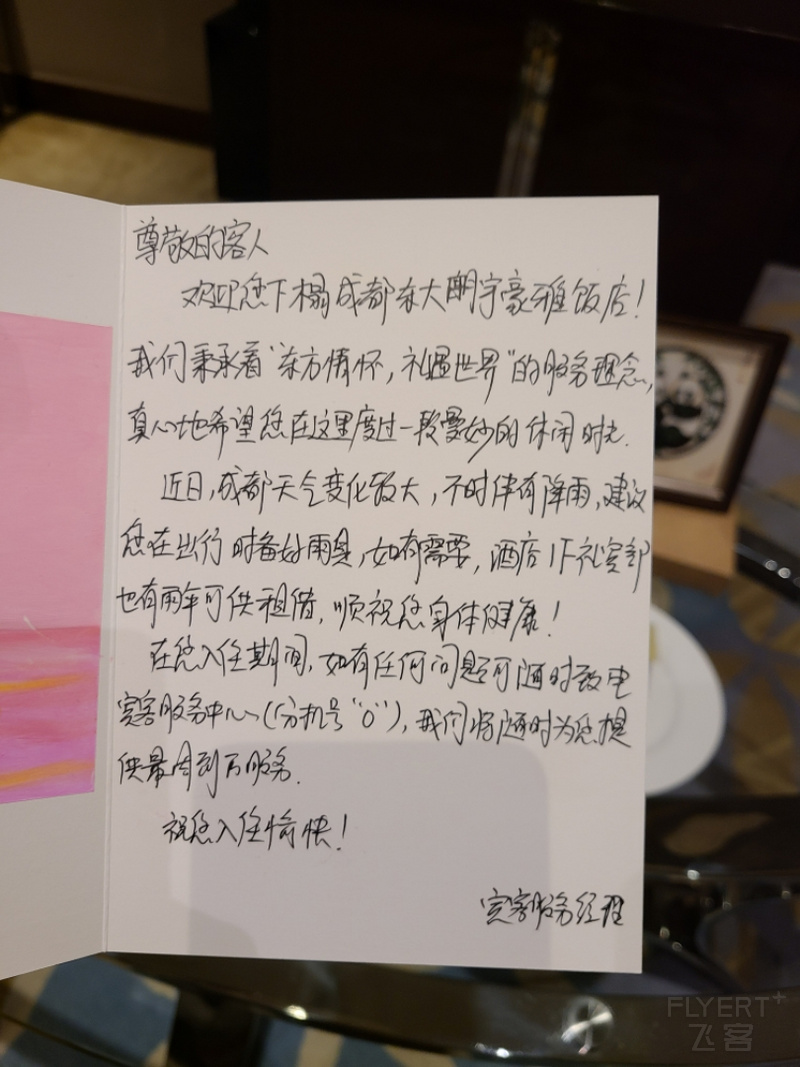 尊敬的客人
欢迎您下榻成都东大明宇豪雅饭店！
我们秉承着“东方情怀，礼遇世界”的服务理念，
真心地希望您在这里度过一段曼妙的休闲时光.
近日，成都天气变化较大，不时伴有降雨，建议
您在出行时备好雨具，如有需要，酒店1F礼宾部
也有雨伞可供租借，顺祝您身体健康！
在您入住期间，如有任何问题可随时致电
宾客服务中心(分机号“0”)，我们将随时为您提
供最周到的服务.
祝您入住愉快！
宾客服务经理
FLYERT+
飞客